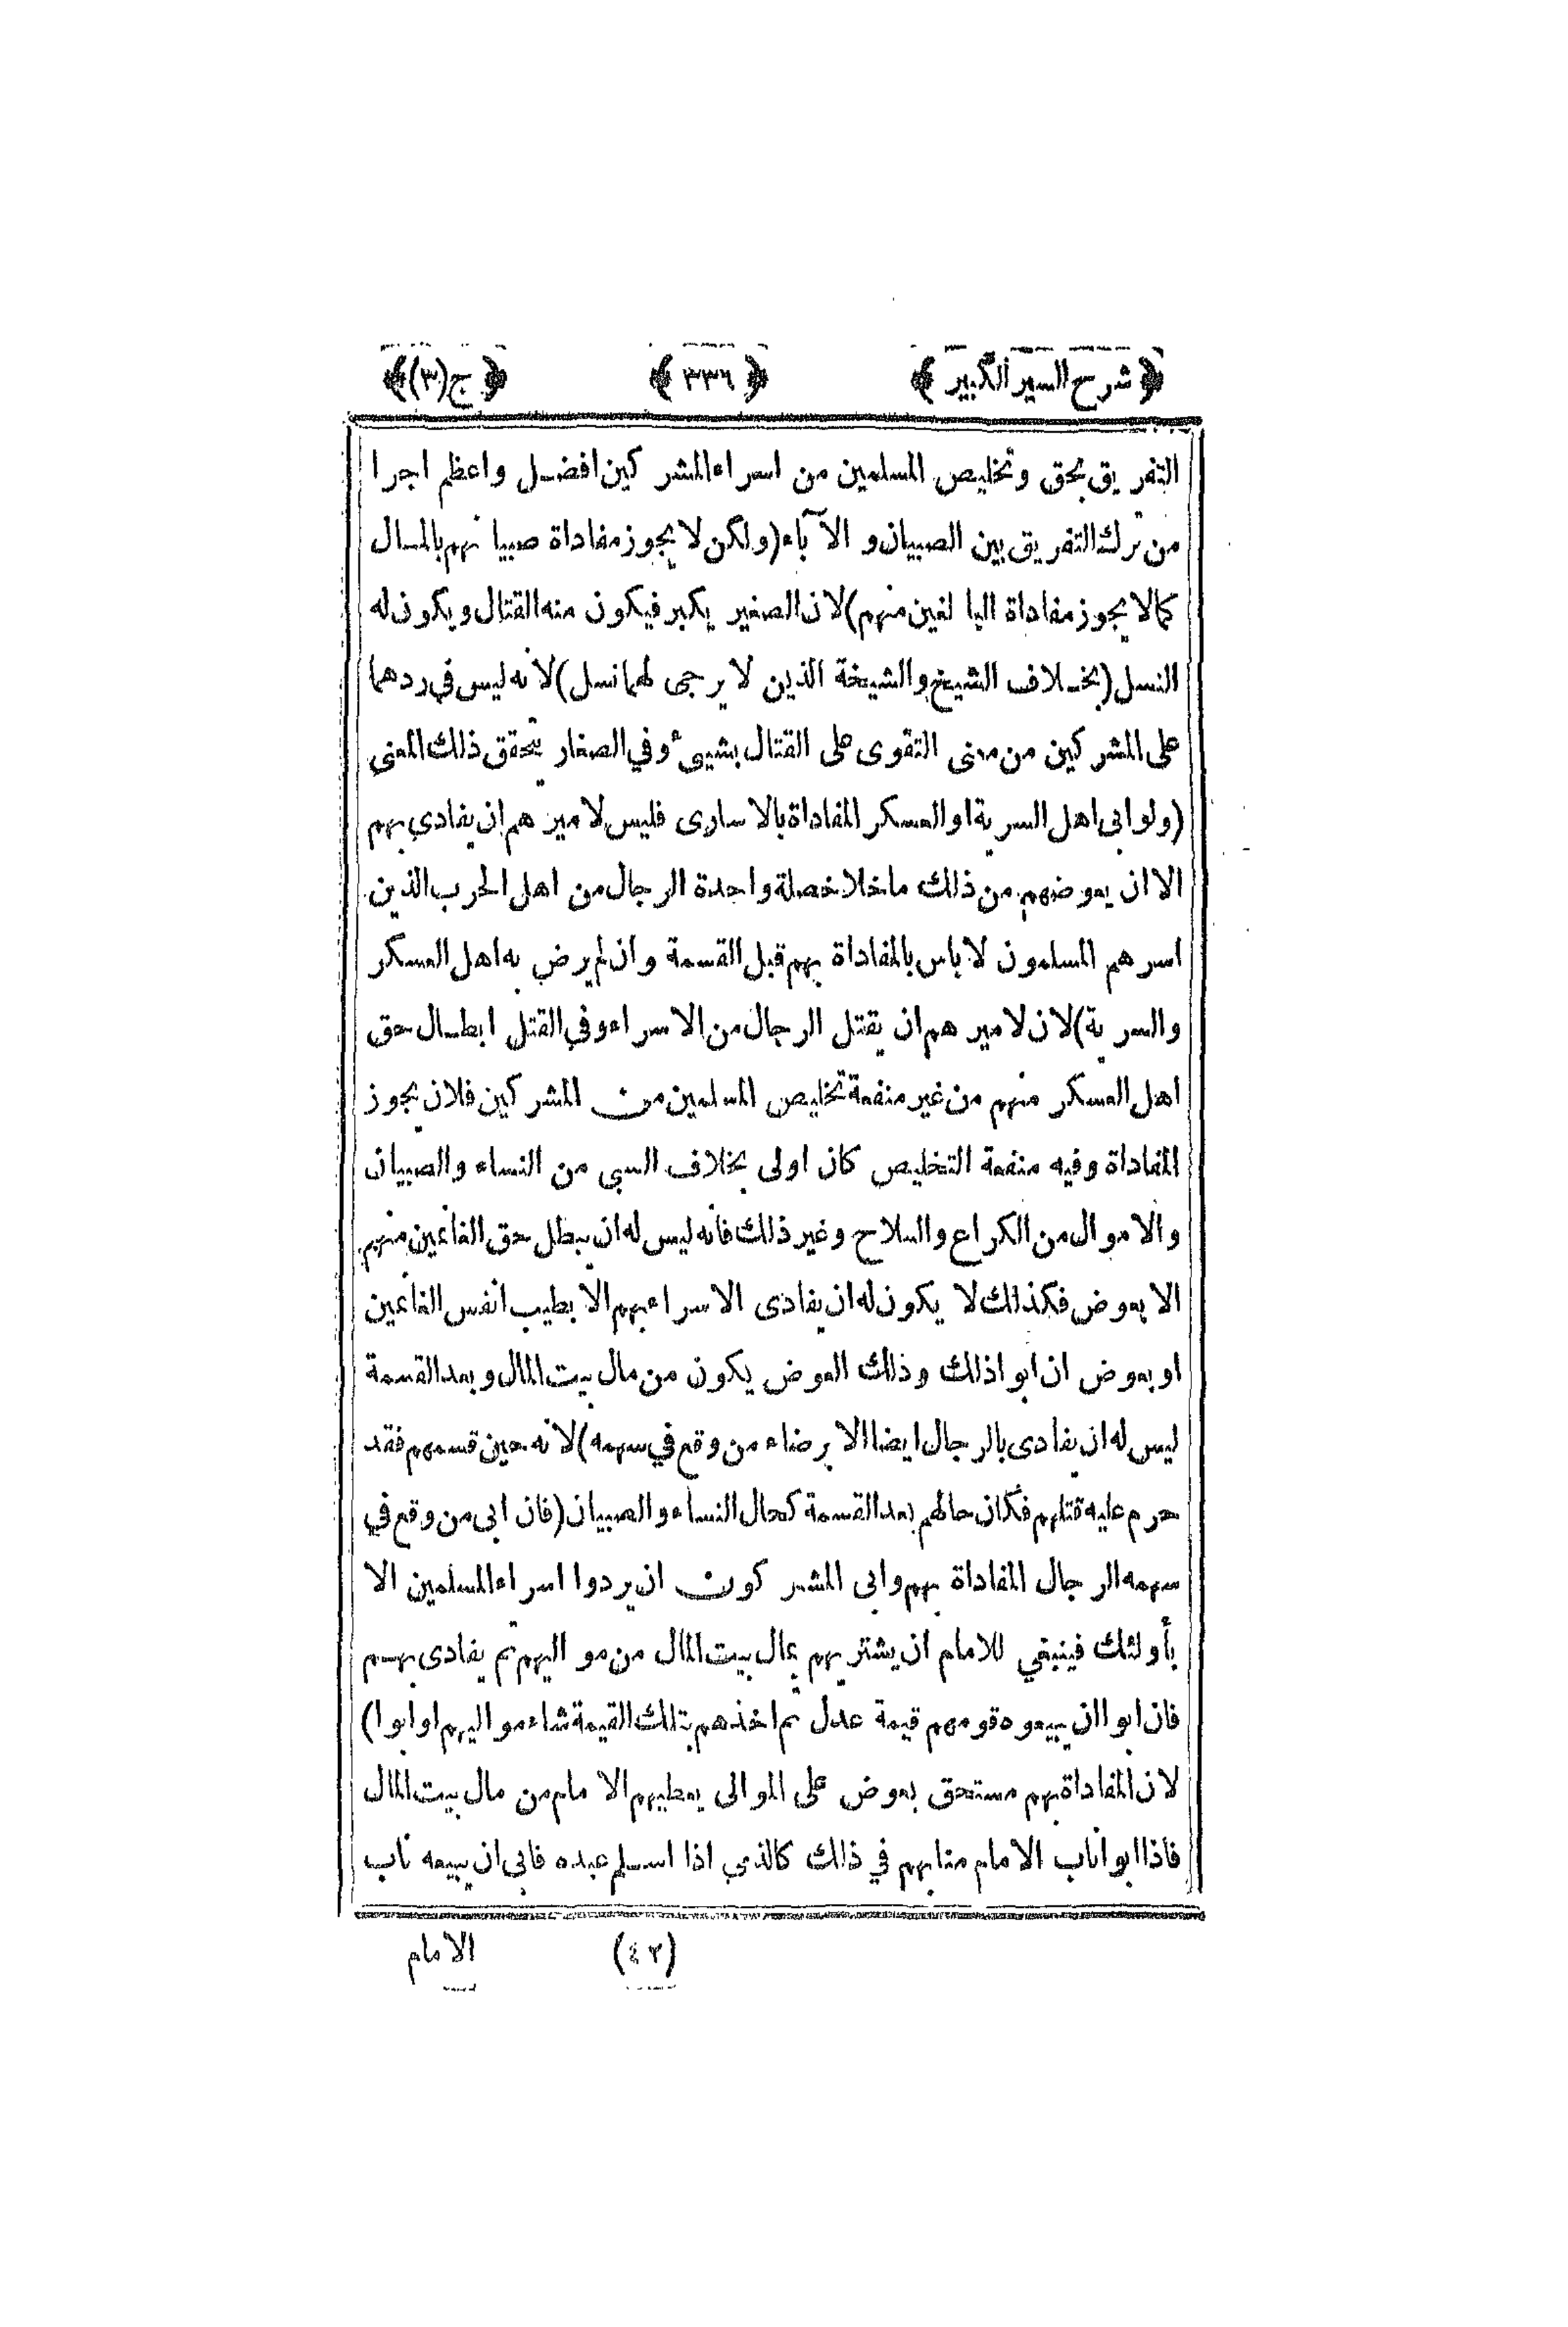 ﴿ شرح السير الكبير ﴾ ﴿ ٣٣٦ ﴾ ﴿ ج(٣) ﴾
التفريق بحق وتخليص المسلمين من اسراء المشركين افضل واعظم اجرا
من ترك التفريق بين الصبيان و الآباء (ولكن لا يجوز مفاداة صبيانهم بالمال
كما لا يجوز مفاداة البالغين منهم) لان الصغير يكبر فيكون منه القتال ويكون له
النسل (بخلاف الشيخ والشيخة الذين لا يرجى لهما نسل) لانه ليس في ردهما
على المشركين من معنى التقوى على القتال بشيئ وفي الصغار يتحقق ذلك المعنى
(ولو ابى اهل السرية او العسكر المفاداة بالاسارى فليس لاميرهم ان يفادي بهم
الا ان يعوضهم من ذلك ما خلا خصلة واحدة الرجال من اهل الحرب الذين
اسرهم المسلمون لا باس بالمفاداة بهم قبل القسمة وان لم يرض به اهل العسكر
والسرية) لان لاميرهم ان يقتل الرجال من الاسراء وفي القتل ابطال حق
اهل العسكر منهم من غير منفعة تخليص المسلمين من المشركين فلان يجوز
المفاداة وفيه منفعة التخليص كان اولى بخلاف السبى من النساء والصبيان
والاموال من الكراع والسلاح وغير ذلك فانه ليس له ان يبطل حق الغانمين منهم
الا بعوض فكذلك لا يكون له ان يفادى الاسراء بهم الا بطيب انفس الغانمين
او بعوض ان ابوا ذلك وذلك العوض يكون من مال بيت المال وبعد القسمة
ليس له ان يفادى بالرجال ايضا الا برضاء من وقع في سهمه) لانه حين قسمهم فقد
حرم عليه قتلهم فكان حالهم بعد القسمة كحال النساء والصبيان (فان ابى من وقع في
سهمه الرجال المفاداة بهم وابى المشركون ان يردوا اسراء المسلمين الا
بأولئك فينبغي للامام ان يشتريهم بمال بيت المال من مواليهم ثم يفادى بهم
فان ابوا ان يبيعوه قومهم قيمة عدل ثم اخذهم بتلك القيمة شاء مواليهم او ابوا)
لان المفاداة بهم مستحق بعوض على الموالى يعطيهم الامام من مال بيت المال
فاذا ابوا ناب الامام منابهم في ذلك كالذي اذا اسلم عبده فابى ان يبيعه ناب
(٤٢) الامام